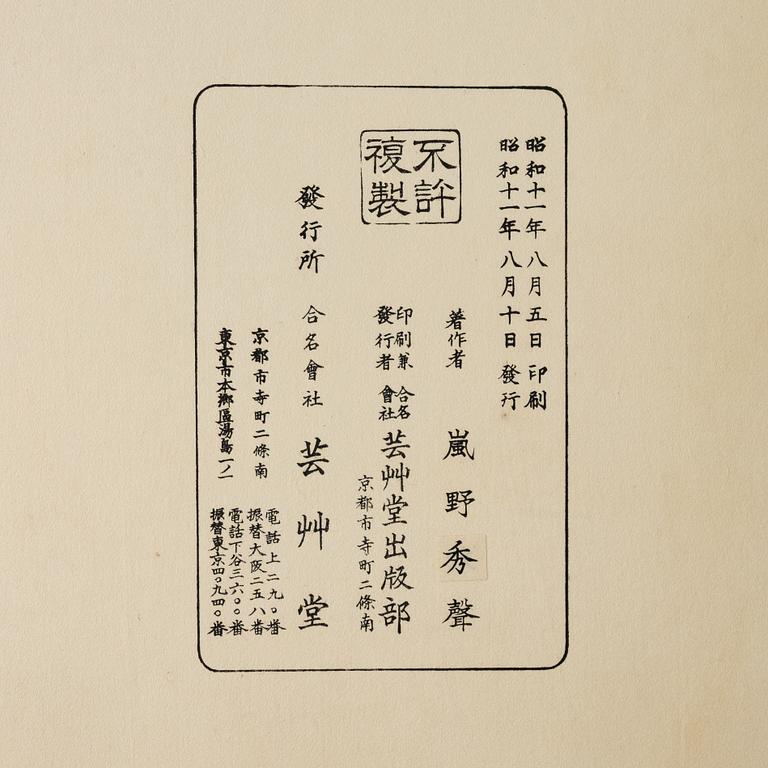 昭和十一年八月五日印刷
昭和十一年八月十日發行
不許
複製
著作者 嵐野秀聲
印刷兼
發行者 合名
會社 芸艸堂出版部
京都市寺町二條南
發行所 合名會社 芸艸堂
京都市寺町二條南
電話上二九〇番
振替大阪二五八番
東京市本鄉區湯島一ノ一
電話下谷三六〇〇番
振替東京四〇九四〇番